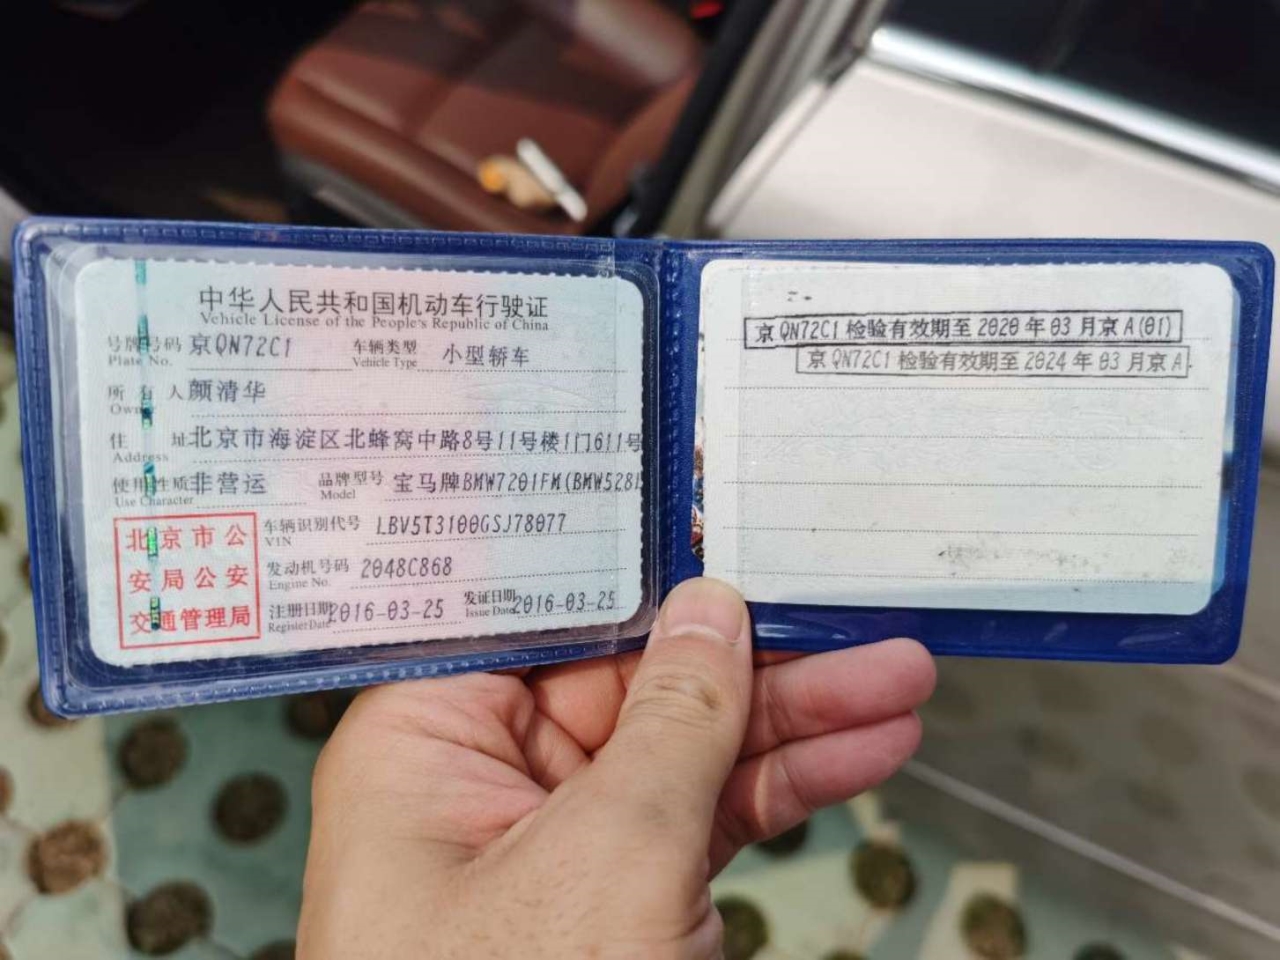 中华人民共和国机动车行驶证
Vehicle License of the People's Republic of China
号牌号码 京QN72C1 车辆类型 小型轿车
Plate No. Vehicle Type
所有人 颜清华
Owner
住址 北京市海淀区北蜂窝中路8号11号楼1门611号
Address
使用性质 非营运 品牌型号 宝马牌BMW7201FM(BMW528I
Use Character Model
北京市公
安局公安
交通管理局
车辆识别代号 LBV5T3100GSJ78077
VIN
发动机号码 2048C868
Engine No.
注册日期 2016-03-25 发证日期 2016-03-25
Register Date Issue Date
京QN72C1检验有效期至2020年03月京A(01)
京QN72C1检验有效期至2024年03月京A